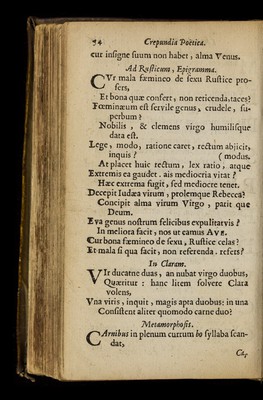 54 Crepundia Poëtica.
cur insigne suum non habet, alma Venus.
Ad Rusticum, Epigramma.
CUr mala fæmineo de sexu Rustice pro-
fers,
Et bona quæ confert, non reticenda, taces?
Fœmineum est servile genus, crudele, su-
perbum?
Nobilis, & clemens virgo humilisque
data est.
Lege, modo, ratione caret, rectum abjicit,
inquis? (modus.
At placet huic rectum, lex ratio, atque
Extremis ea gaudet. ais mediocria vitat?
Hæc extrema fugit, sed mediocre tenet.
Decepit Iudæa virum, prolemque Rebecca?
Concipit alma virum Virgo, parit que
Deum.
Eva genus nostrum felicibus expulit arvis?
In meliora facit, nos ut eamus AVE.
Cur bona fæmineo de sexu, Rustice celas?
Et mala si qua facit, non referenda, refers?
In Claram.
VIr ducat ne duas, an nubat virgo duobus,
Quæritur: hanc litem solvere Clara
volens,
Una viris, inquit, magis apta duobus: in una
Consistent aliter quomodo carne duo?
Metamorphosis.
CArnibus in plenum cuttum bo syllaba scan-
dat,